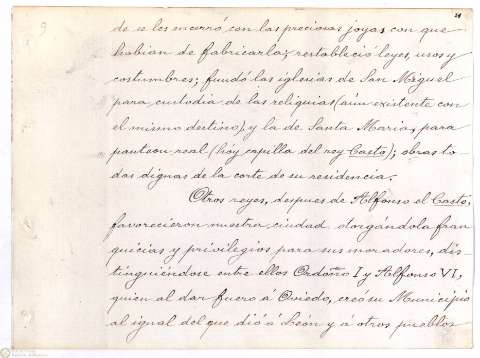 de se los encerró, con las preciosas joyas con que
habian de fabricarla; restableció leyes, usos y
costumbres; fundó las iglesias de San Miguel
para custodia de las reliquias (aún existente con
el mismo destino), y la de Santa Maria, para
panteon real (hóy capilla del rey Casto); obras to
das dignas de la corte de su residencia.
Otros reyes, despues de Alfonso el Casto,
favorecieron nuestra ciudad otorgándola fran
quicias y privilegios para sus moradores, dis-
tinguiéndose entre ellos Ordoño I y Alfonso VI,
quien al dar fuero á Oviedo, creó su Municipio
al igual del que dió á León y á otros pueblos